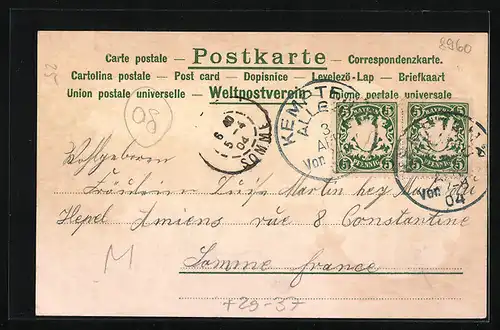 8960
Carte postale — Postkarte — Correspondenzkarte.
Cartolina postale — Post card — Dopisnice — Levelező-Lap — Briefkaart
Union postale universelle — Weltpostverein — Union postale universale
25
98
SOMME
6
5 -4
04
KEMPTEN
ALLG
3
Von
BAYERN
5 5
PFENNIG
BAYERN
5 5
PFENNIG
Von
04
Wohlgeboren
Fräulein Martin hez
Hepel Amiens rue 8 Constantine
M
Somme france
+29-37